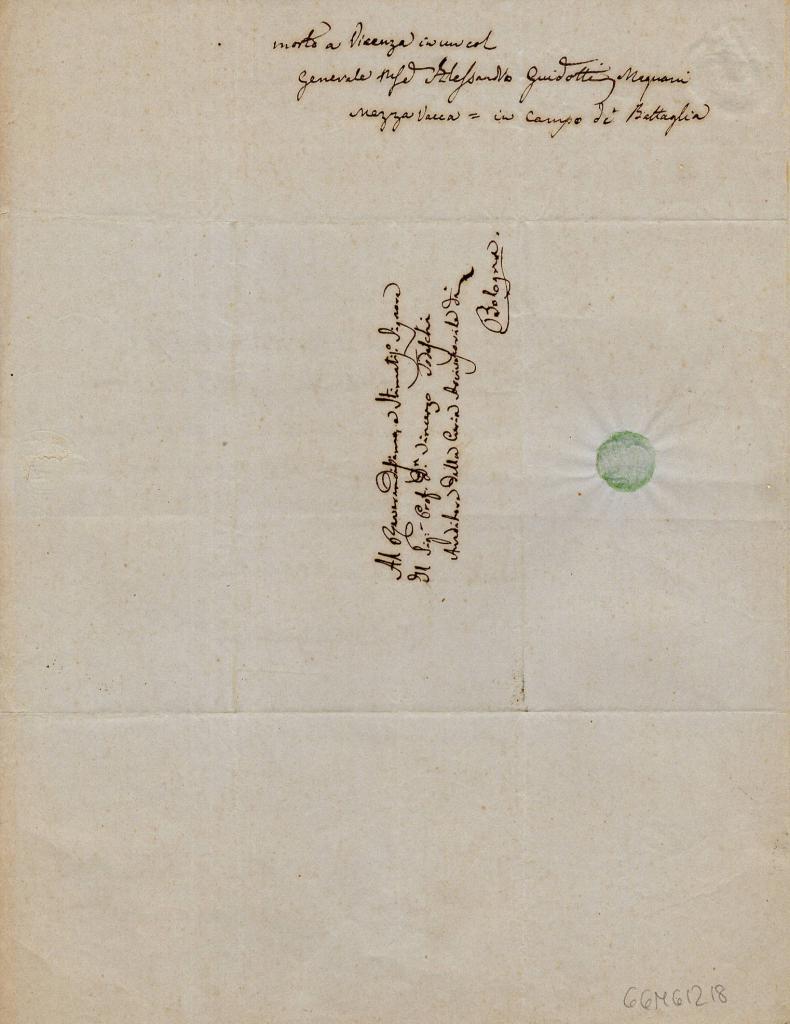 morto a Vicenza in un col
Generale Alessandro Guidotti, Magnani
Mezza Vacca = in campo di Battaglia
Al Reverendissimo, e Stimatis. Signore
Il Sig. Prof. Dn. Vincenzo Todeschi
Auditore della Curia Arcivescovile di
Bologna.
66M61218